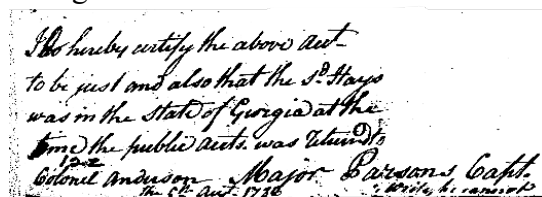 I do hereby certify the above Acct
to be just and also that the sd. Hays
was in the State of Georgia at the
time the public Accts. was Returnd to
Colonel Anderson Major Parsons Capt.